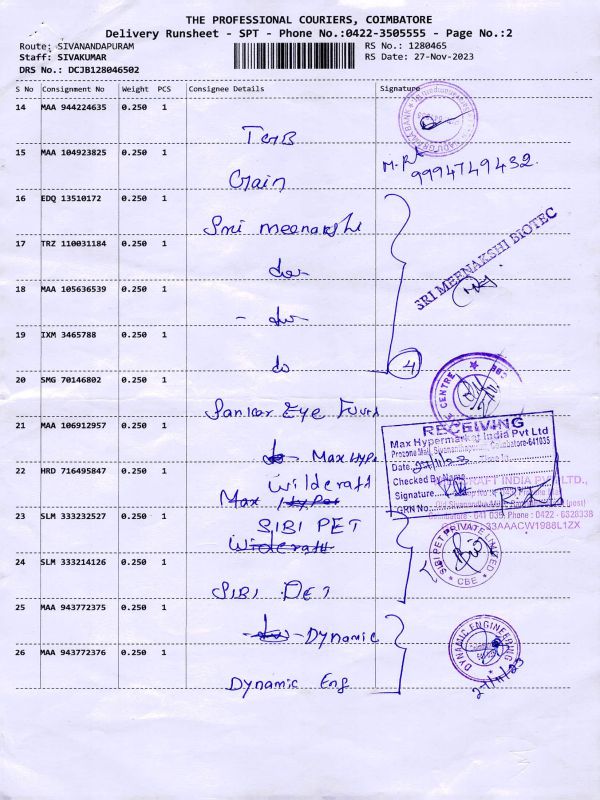 THE PROFESSIONAL COURIERS, COIMBATORE
Delivery Runsheet - SPT - Phone No.:0422-3505555 - Page No.:2
Route: SIVANANDAPURAM
RS No.: 1280465
Staff: SIVAKUMAR
RS Date: 27-Nov-2023
DRS No.: DCJB128046502
S No Consignment No Weight PCS Consignee Details Signature
14 MAA 944224635 0.250 1
TMB
15 MAA 104923825 0.250 1
9994749432.
Gain
16 EDQ 13510172 0.250 1
Smi meenakshi
17 TRZ 110031184 0.250 1
SRI MEENAKSHI BIOTEC
do
18 MAA 105636539 0.250 1
- do
19 IXM 3465788 0.250 1
do
4
20 SMG 70146802 0.250 1
CENTRE
CBE
Sankar Eye Fund
21 MAA 106912957 0.250 1
RECEIVING
Max Hypermarket India Pvt Ltd
Prozone Mall, Sivanandhapuram, Coimbatore-641035
Date 27/11/23 Time
Max Hype
22 HRD 716495847 0.250 1
Checked By Name
CRAFT INDIA PVT LTD.,
Wildcraft
Signature
Max Hyper
GRN No.
Coimbatore - 641 035. Phone : 0422 - 6328338
33AAACW1988L1ZX
23 SLM 333232527 0.250 1
SIBI PET
Wildcraft
SIBI PET PRIVATE LIMITED
CBE
24 SLM 333214126 0.250 1
SIBI PET
25 MAA 943772375 0.250 1
- Dynamic
DYNAMIC ENGINEERING
26 MAA 943772376 0.250 1
Dynamic Eng
27/11/23